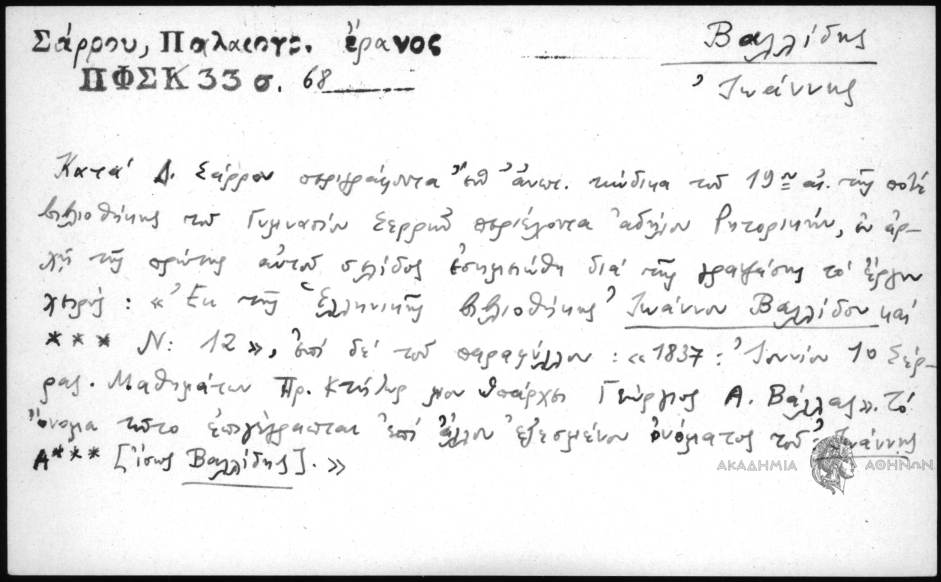 Σάρρου, Παλαιογρ. ἔρανος
ΠΦΣΚ 33 σ. 68
Βαλλίδης
Ἰωάννης
Κατά Δ. Σάρρον περιγράφοντα ὑπ' ἀνωτ. κώδικα τοῦ 19ου αἰ. τῆς ποτέ
βιβλιοθήκης τοῦ Γυμνασίου Σερρῶν περιέχοντα ἀδήλου Ρητορικήν, ἐν ἀρ-
χῇ τῆς πρώτης αὐτοῦ σελίδος ἐσημειώθη διά τῆς γραψάσης τό ἔργον
χειρός : « Ἐκ τῆς Ἑλληνικῆς βιβλιοθήκης Ἰωάννου Βαλλίδου καί
*** Ν: 12 », ἐπί δέ τοῦ παραφύλλου : «1837 : Ἰουνίου 10 Σέρ-
ρας. Μαθημάτων Πρ. Κτήτωρ μου ὑπάρχει Γεώργιος Α. Βάλλας». τό
ὄνομα τοῦτο ἐπιγέγραπται ἐπί ἄλλου ἐξεσμένου ὀνόματος τοῦ Ἰωάννης
Α*** [ἴσως Βαλλίδης]. »
ΑΚΑΔΗΜΙΑ ΑΘΗΝΩΝ